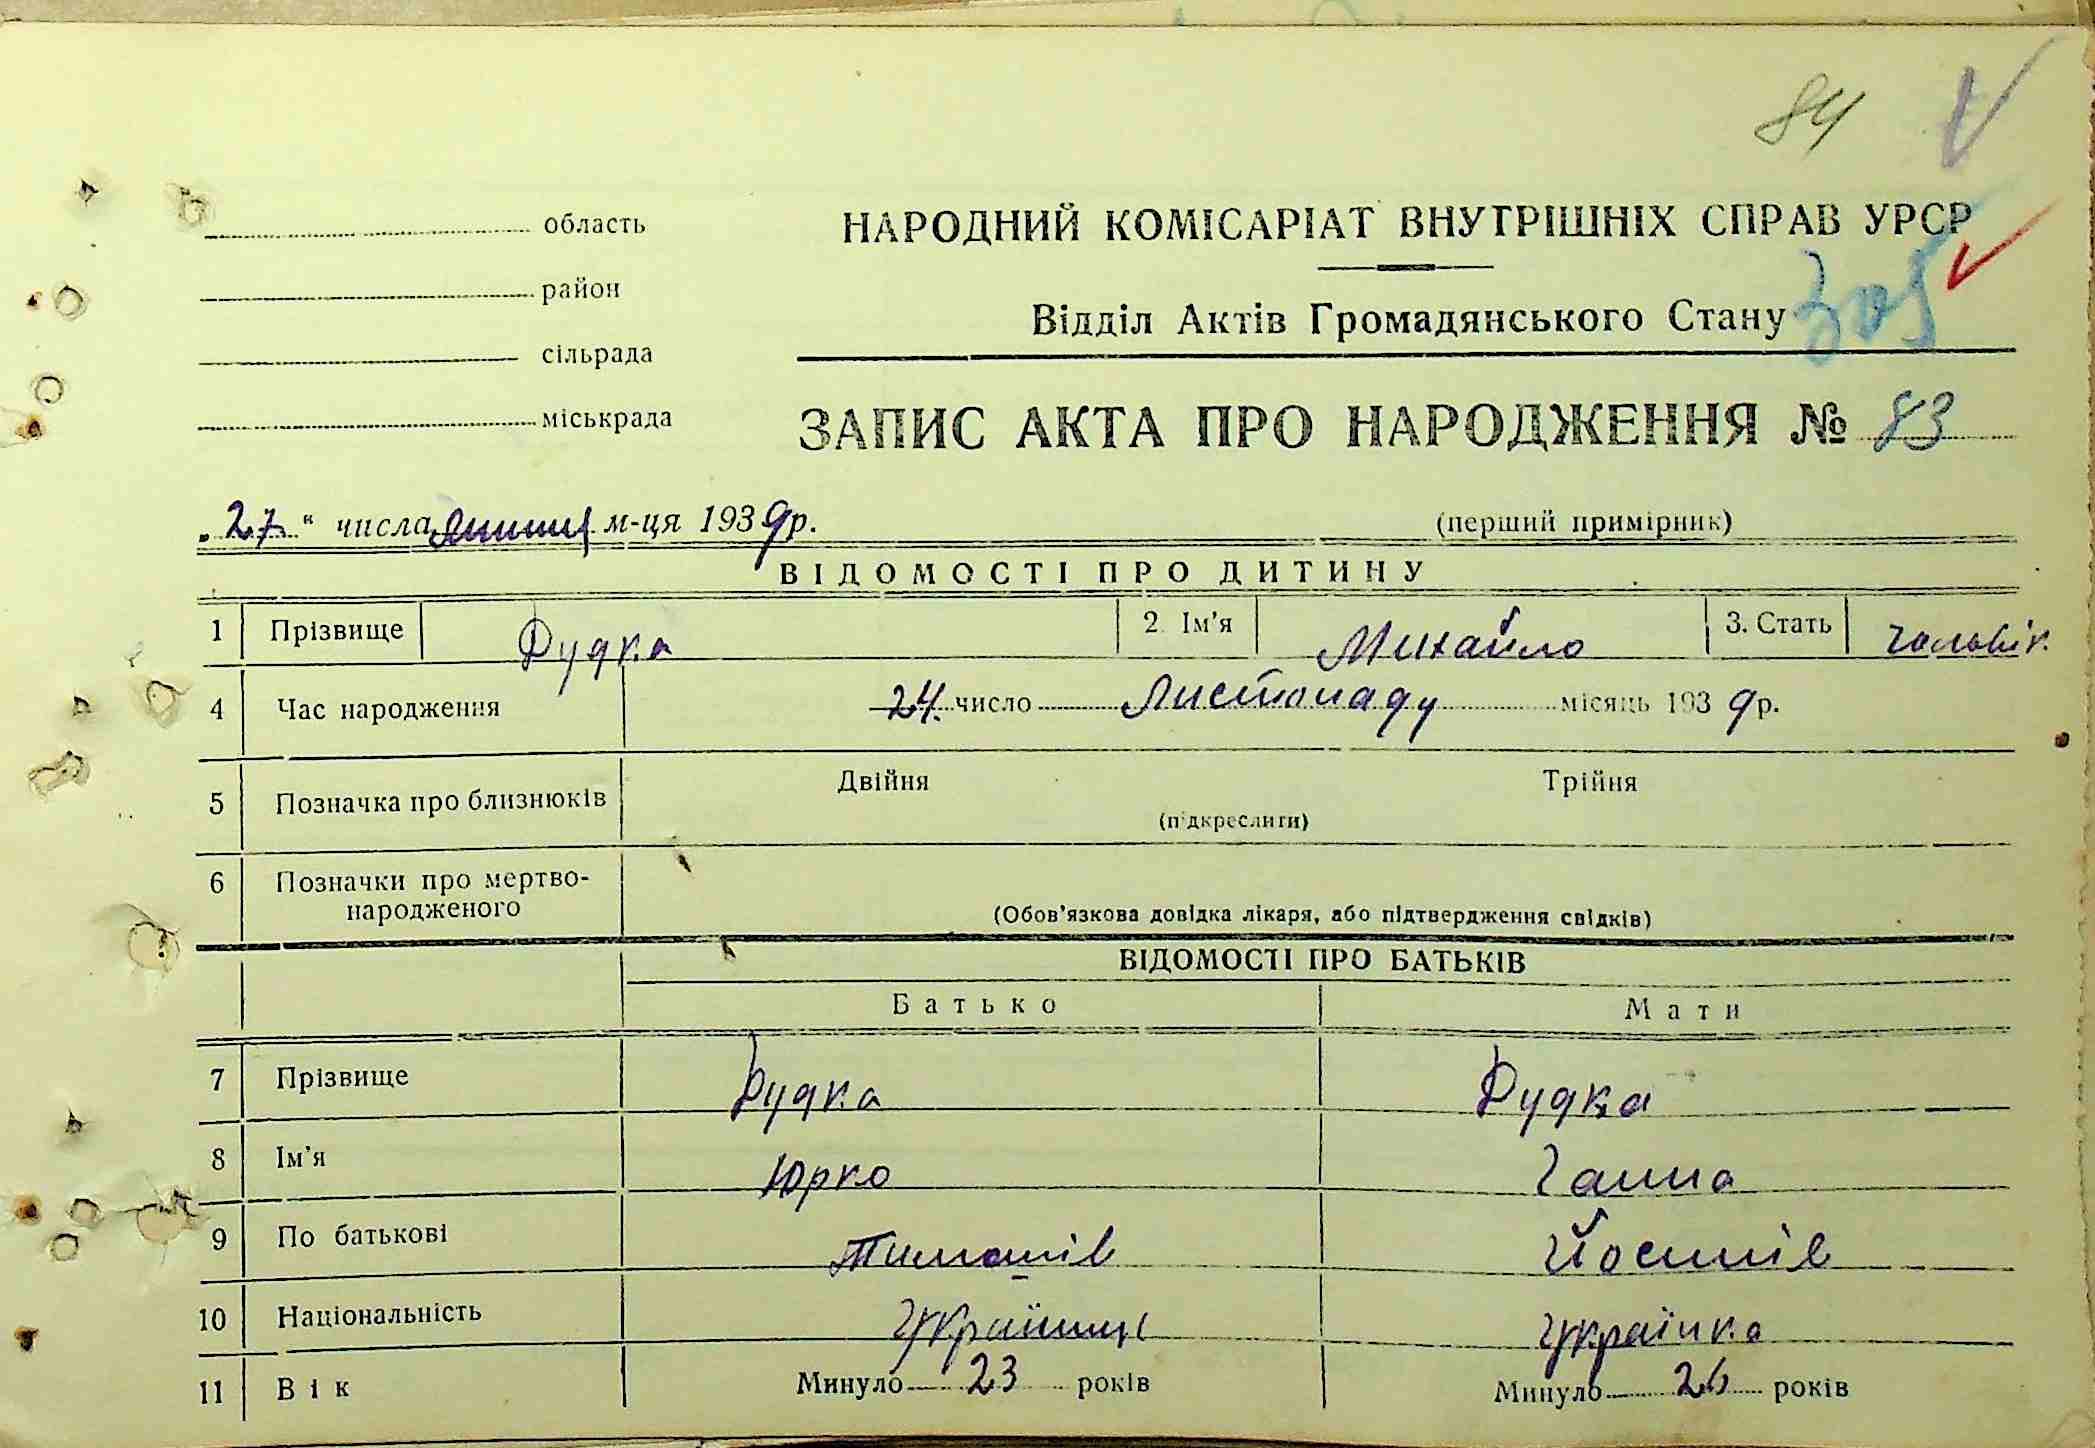 84
область
НАРОДНИЙ КОМІСАРІАТ ВНУТРІШНІХ СПРАВ УРСР
район
Відділ Актів Громадянського Стану 305
сільрада
міськрада
ЗАПИС АКТА ПРО НАРОДЖЕННЯ № 83
„27“ числа м-ця 1939 р. (перший примірник)
ВІДОМОСТІ ПРО ДИТИНУ
1 Прізвище Дудка 2. Ім'я Михайло 3. Стать чоловік.
4 Час народження 24. число Листопаду місяць 1939 р.
5 Позначка про близнюків Двійня Трійня
(підкреслити)
6 Позначки про мертво-
народженого
(Обов'язкова довідка лікаря, або підтвердження свідків)
ВІДОМОСТІ ПРО БАТЬКІВ
Батько Мати
7 Прізвище Дудка Дудка
8 Ім'я Юрко Ганна
9 По батькові Йосипів
10 Національність Українець Українка
11 Вік Минуло 23 років Минуло 26 років